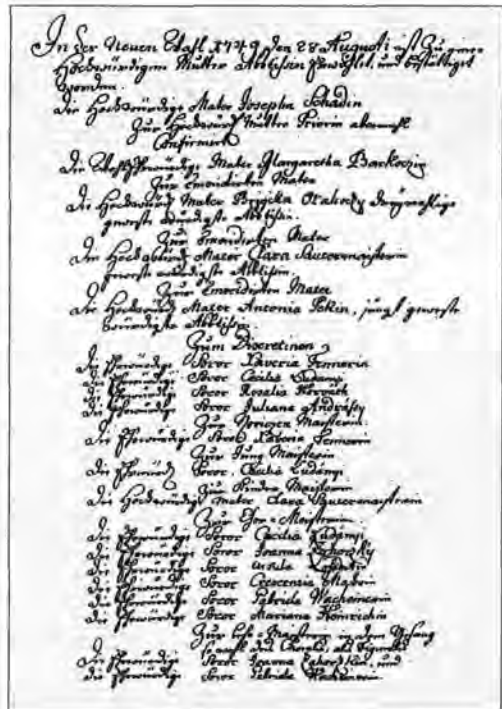 In der Neuen Wahl 1749 den 28 Augusti ist zu einer
Hochwürdigen Mutter Abbtissin Erwählet, und bestättiget
worden.
Die Hochwürdige Mater Josepha Schadin
Zur Hochwürd Mutter Priorin abermahl
Confirmirt
Die Wohlehrwürdige Mater Margaretha Barkoczin
Zur Emeridirten Mater
Die Hochwürd Mater Brigitta
geweste würdigste Abbtissin.
Zur Emeridirten Mater
Die Hochwürd Mater Clara Sauermaisterin
geweste würdigste Abbtissin.
Zur Emeridirten Mater
Die Hochwürd Mater Antonia, jüngst geweste
würdigste Abbtissin.
Zum Discretinen
Die Ehrwürdige Soror Xaveria
Die Ehrwürdige Soror Cecilia
Die Ehrwürdige Soror Rosalia Horvath
Die Ehrwürdige Soror Juliana Andrássy
Zur Novizen Maisterin.
Die Ehrwürdige Soror Xaveria
Zur Jung Maisterin
Die Ehrwürd Soror. Cecilia
Zur Kinder Maisterin
Die Hochwürdige Mater Clara
Zur Chor-Meisterin.
Die Ehrwürdige Soror Cecilia
Die Ehrwürdige Soror Joanna
Die Ehrwürdige Soror
Die Ehrwürdige Soror Crescenzia
Die Ehrwürdige Soror Gabriela
Die Ehrwürdige Soror Mariana
Zur Maisterin in dem Gesang
so wohl des Chorals, als Figurals
Die Ehrwürdige Soror Joanna, und
Die Ehrwürdige Soror Gabriela